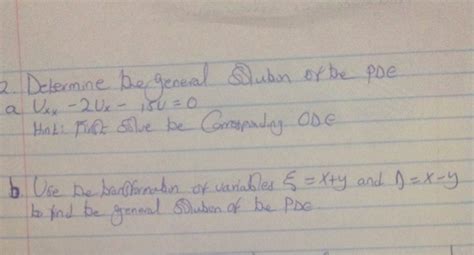 2. Determine the general Solution of the PDE
a Uxx - 2Ux - 15U = 0
Hint: First Solve the Corresponding ODE
b. Use the transformation of variables ξ = x+y and η = x-y
to find the general Solution of the PDE